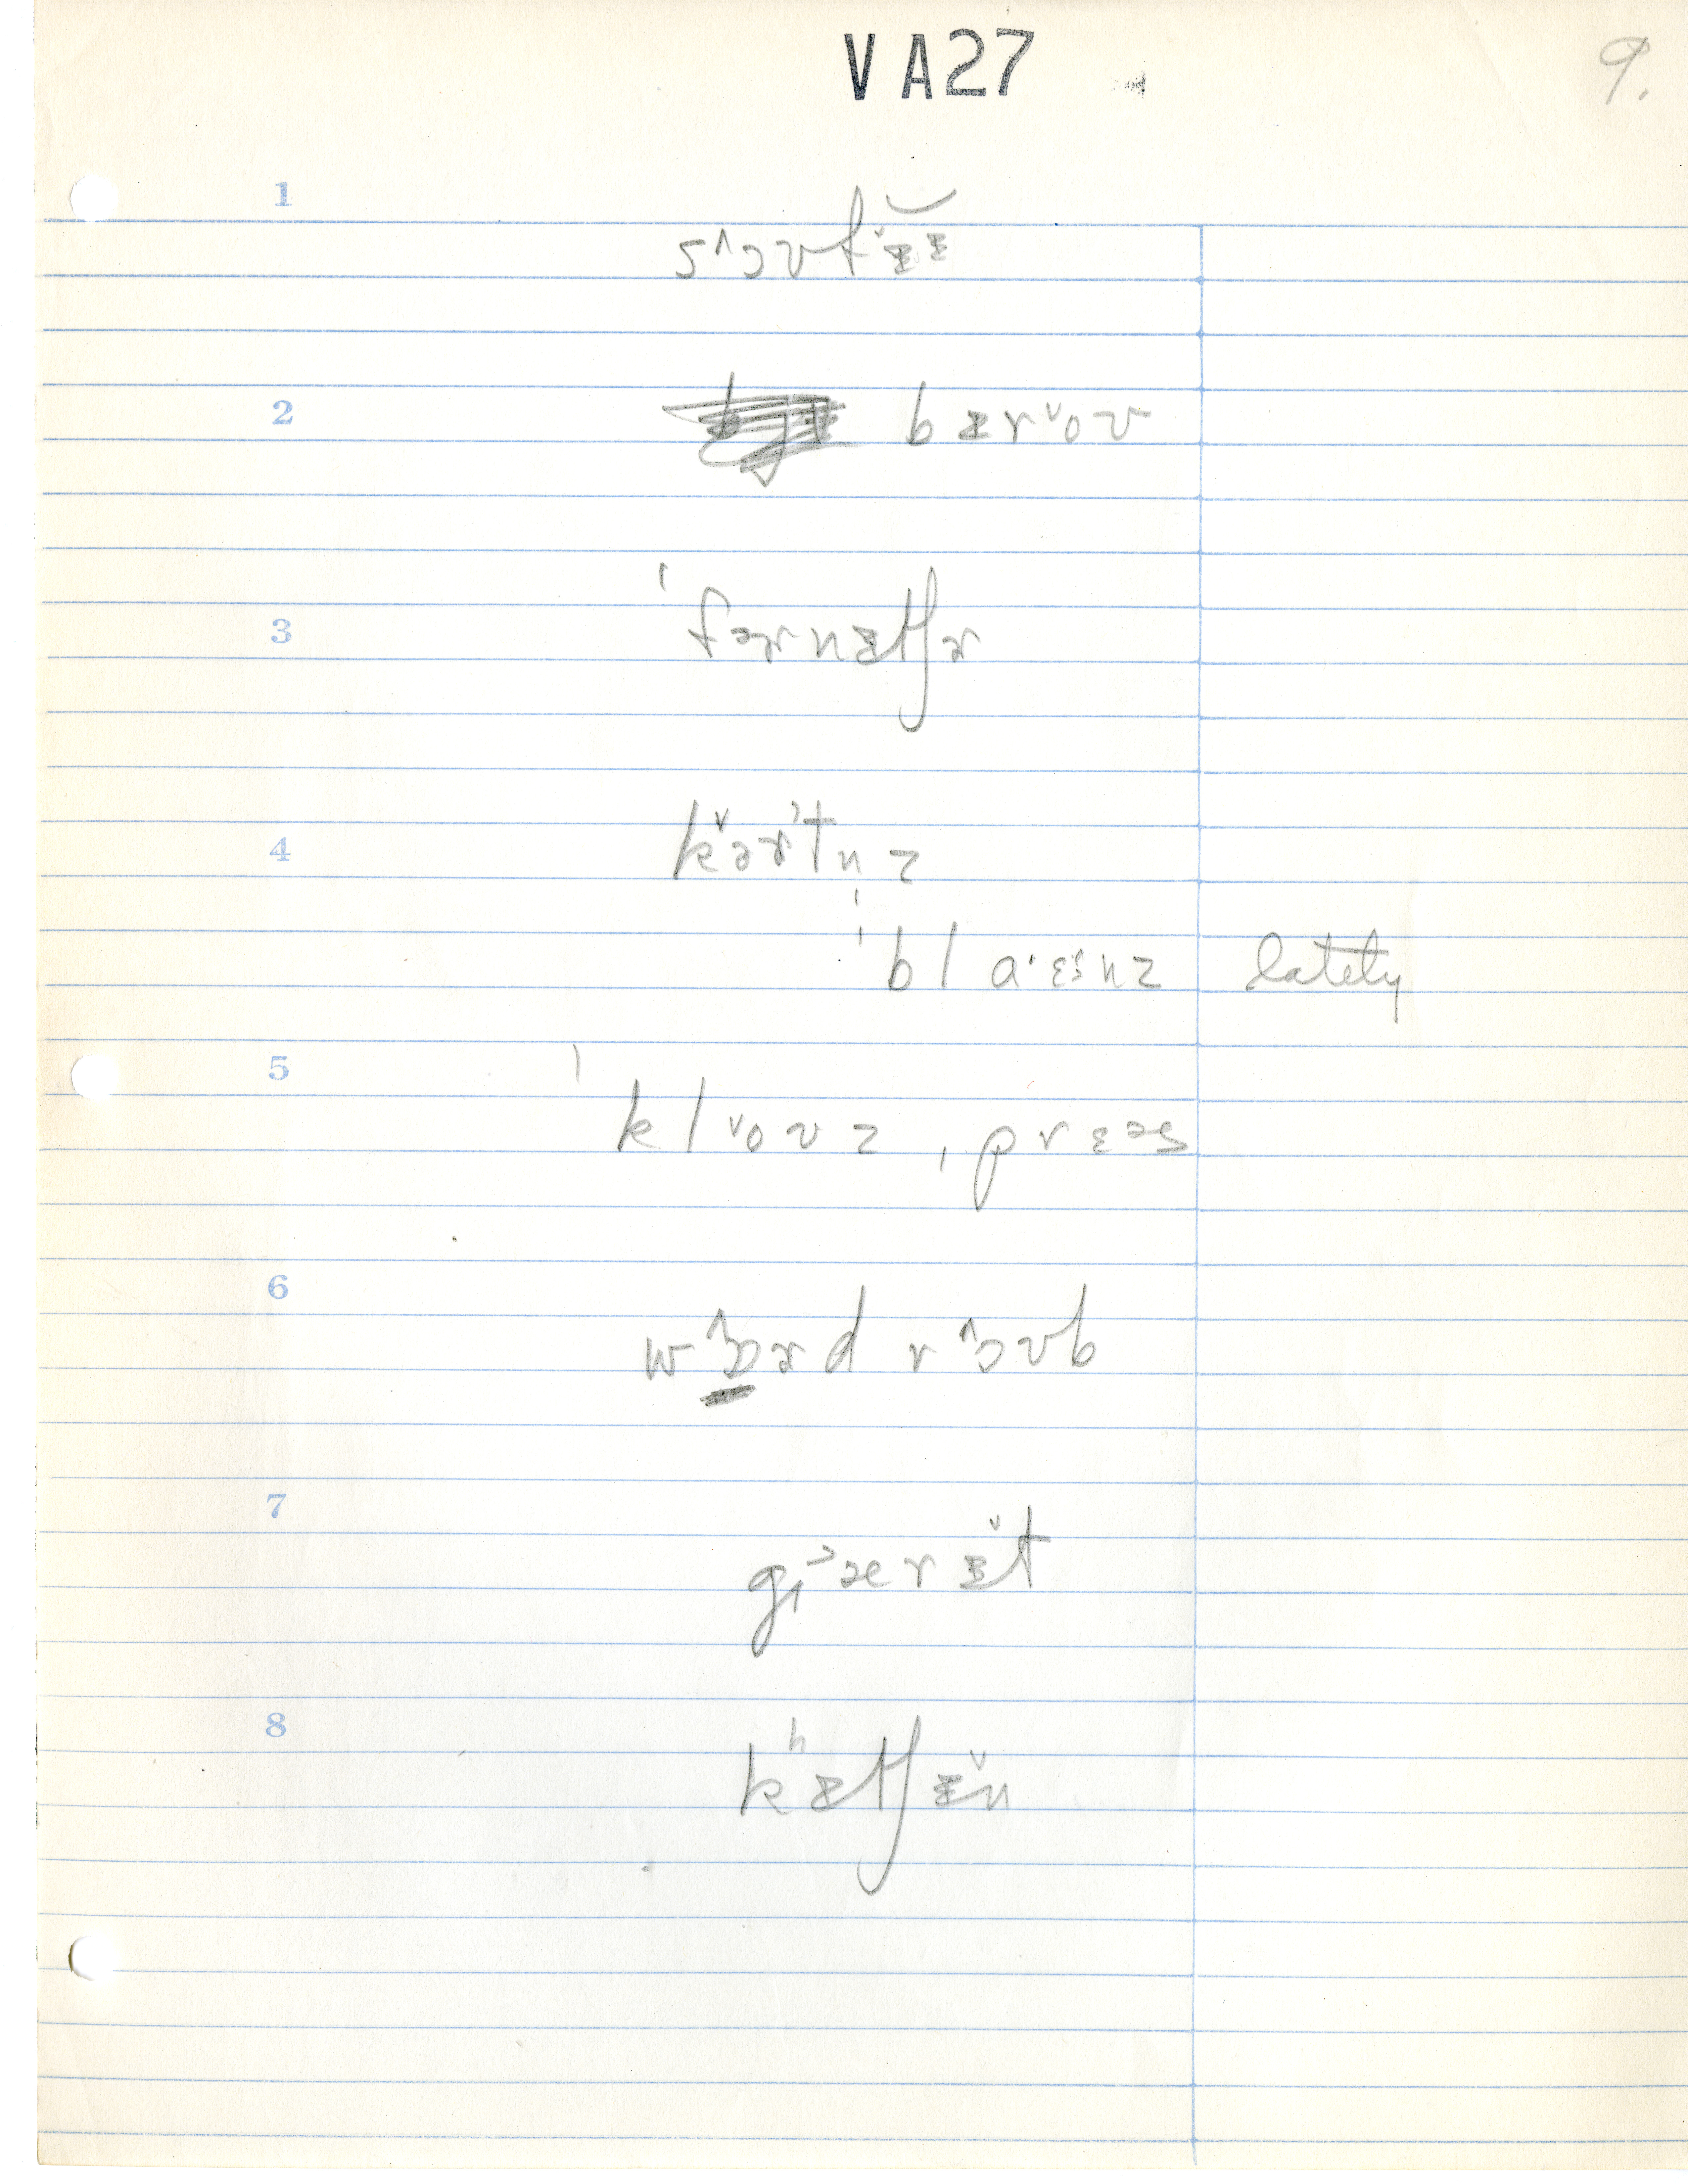 VA27
9.
1
s˄ɔʊfə̌ᵻᵻ
2
bᵻr˅oʊ
3
ˈfɚnᵻtʃɚ
4
kə̌ɚtnz
ˈblaˑɛᵊnz lately
5
ˈkl˅oʊz ˌprɛəs
6
wɔ˄ɚd r˄ɔʊb
7
gɪ˃ærᵻ̌t
8
kʰᵻtʃᵻ̌n